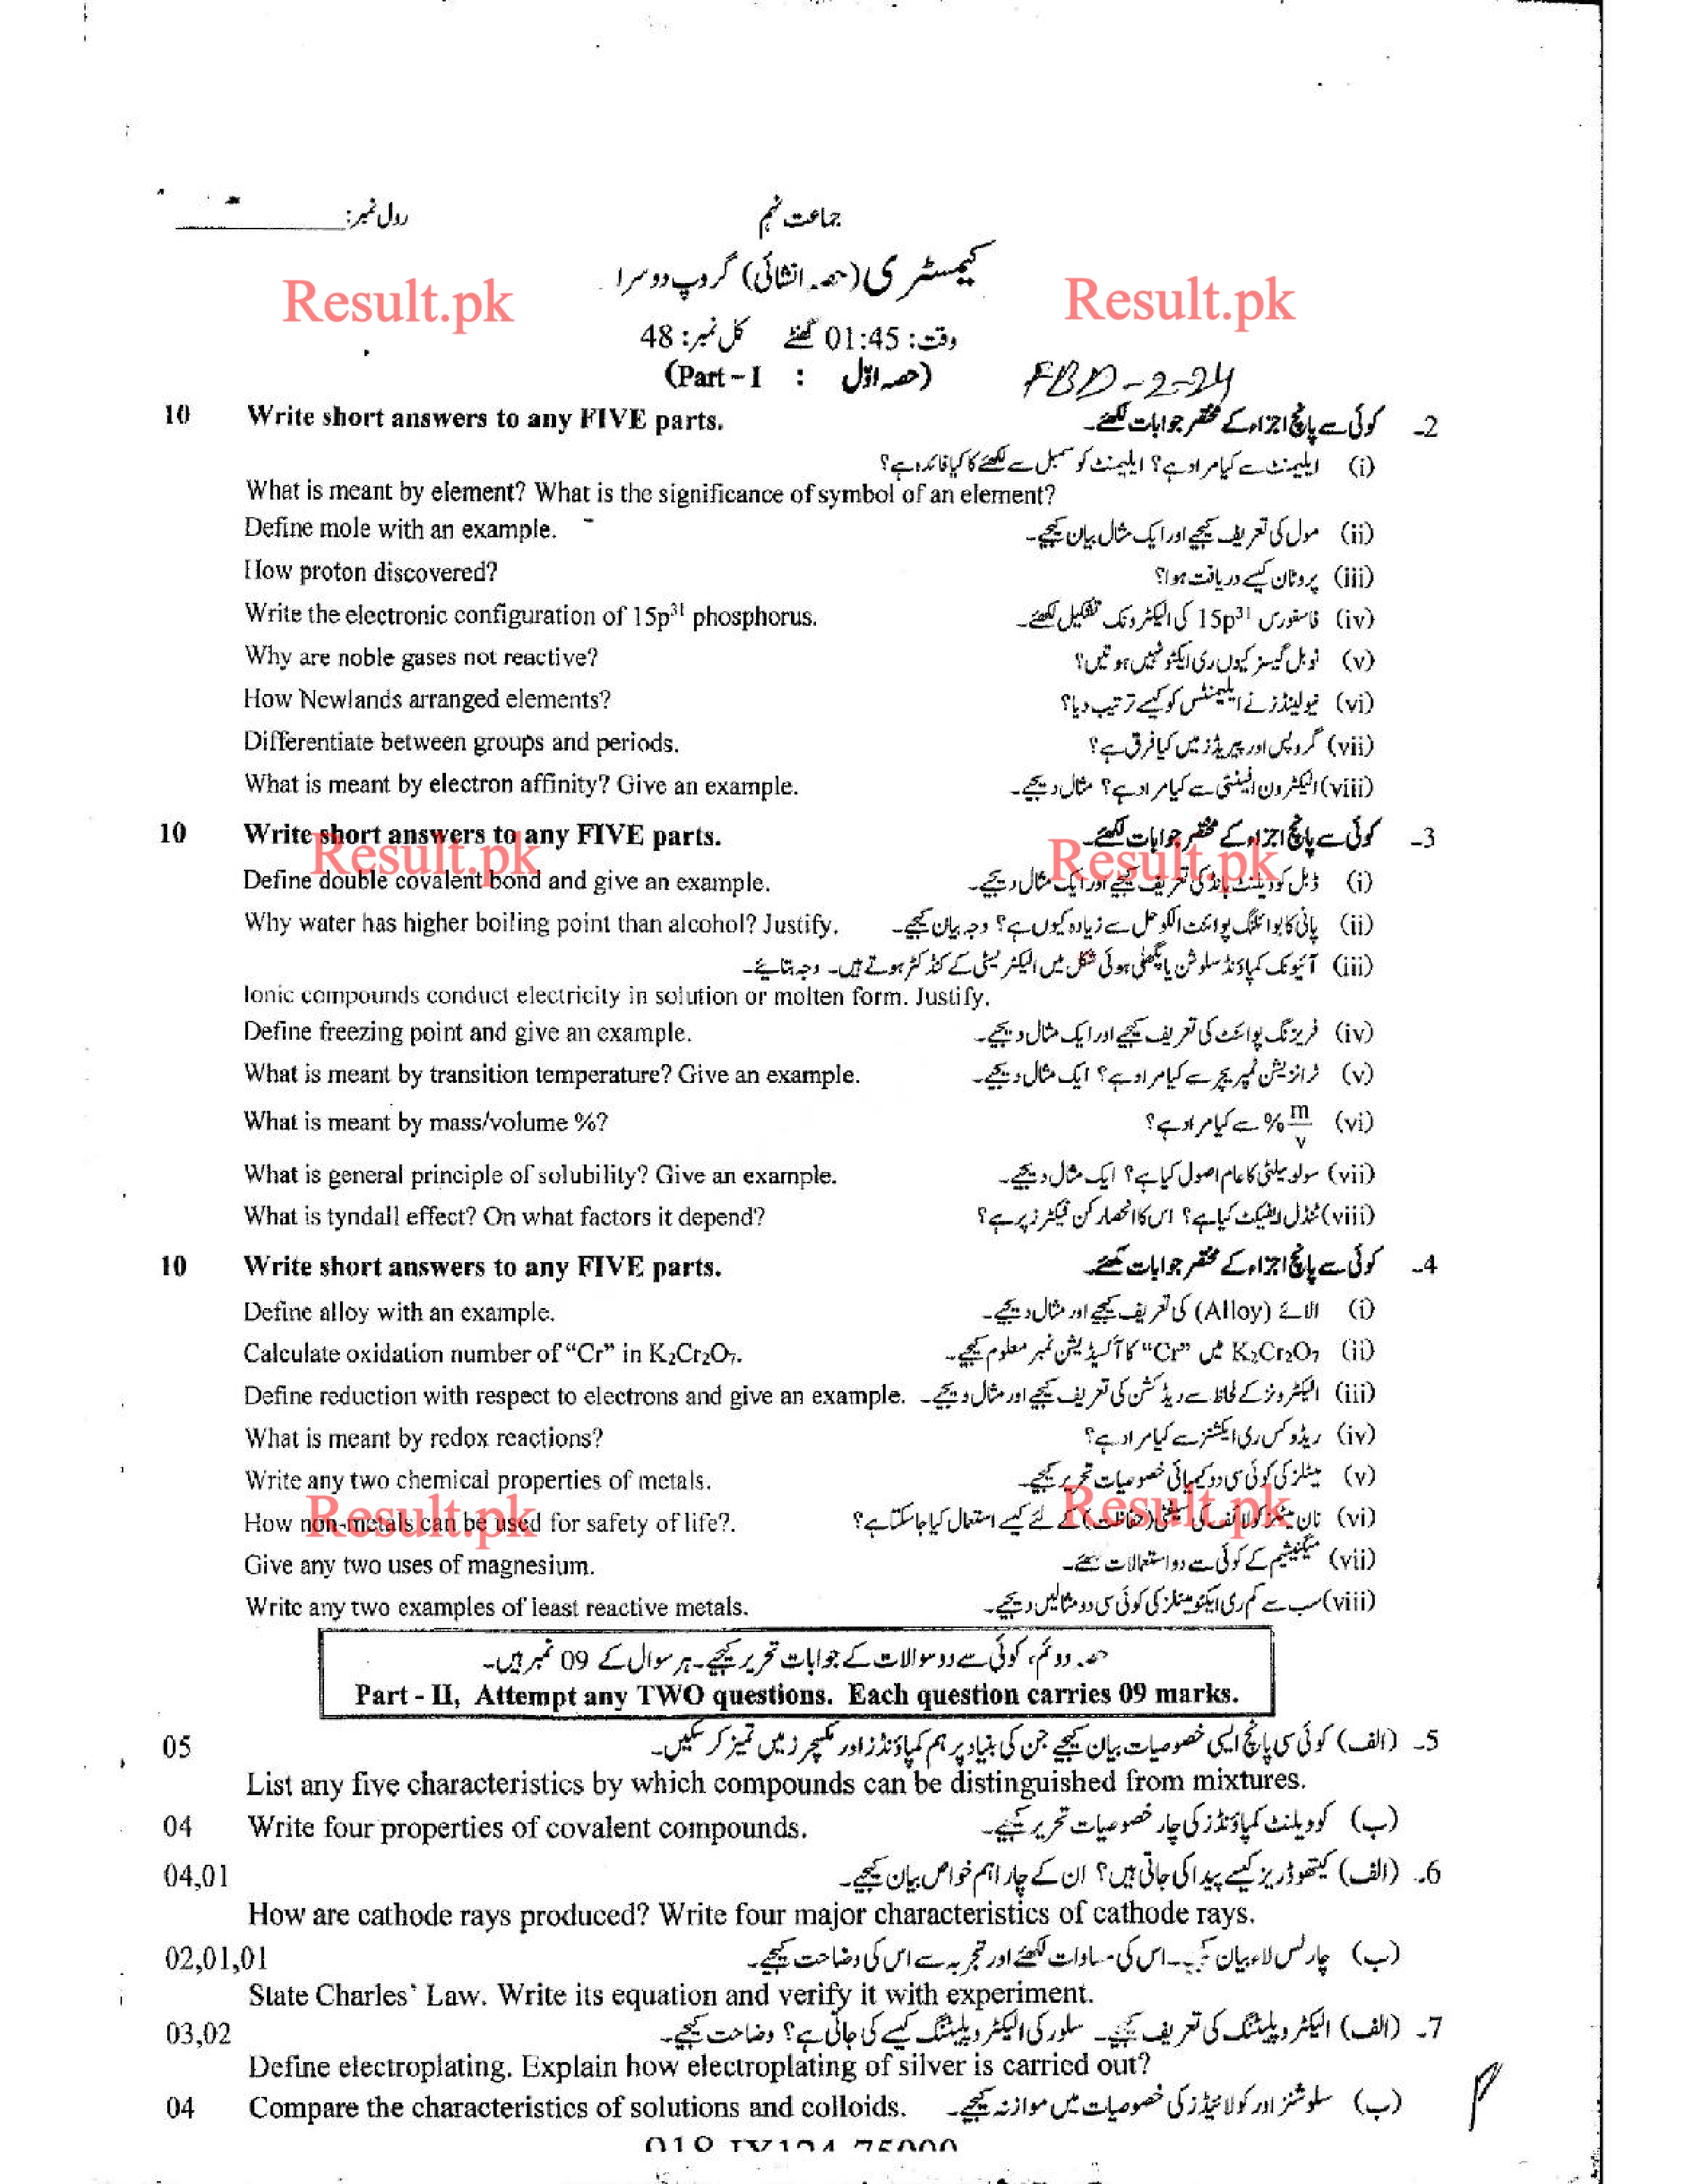 رول نمبر:
جماعت نہم
کیمسٹری (حصہ انشائی) گروپ دوسرا
Result.pk
Result.pk
وقت: 01:45 گھنٹے کل نمبر: 48
(Part – I : حصہ اوّل)
FBD-2-24
10 Write short answers to any FIVE parts. کوئی سے پانچ اجزاء کے مختصر جوابات لکھئے۔ 2-
(i) ایلیمنٹ سے کیا مراد ہے؟ ایلیمنٹ کو سمبل سے لکھنے کا کیا فائدہ ہے؟
What is meant by element? What is the significance of symbol of an element?
Define mole with an example. (ii) مول کی تعریف کیجئے اور ایک مثال بیان کیجئے۔
How proton discovered? (iii) پروٹان کیسے دریافت ہوا؟
Write the electronic configuration of 15p³¹ phosphorus. (iv) فاسفورس 15p³¹ کی الیکٹرونک تشکیل لکھئے۔
Why are noble gases not reactive? (v) نوبل گیسز کیوں ری ایکٹو نہیں ہوتیں؟
How Newlands arranged elements? (vi) نیولینڈز نے ایلیمنٹس کو کیسے ترتیب دیا؟
Differentiate between groups and periods. (vii) گروپس اور پیریڈز میں کیا فرق ہے؟
What is meant by electron affinity? Give an example. (viii) الیکٹرون افینٹی سے کیا مراد ہے؟ مثال دیجئے۔
10 Write short answers to any FIVE parts. کوئی سے پانچ اجزاء کے مختصر جوابات لکھئے۔ 3-
Result.pk
Result.pk
Define double covalent bond and give an example. (i) ڈبل کوویلنٹ بانڈ کی تعریف کیجئے اور ایک مثال دیجئے۔
Why water has higher boiling point than alcohol? Justify. (ii) پانی کا بوائلنگ پوائنٹ الکوحل سے زیادہ کیوں ہے؟ وجہ بیان کیجئے۔
(iii) آئیونک کمپاؤنڈ سلوشن یا پگھلی ہوئی شکل میں الیکٹریسٹی کے کنڈکٹر ہوتے ہیں۔ وجہ بتائیے۔
Ionic compounds conduct electricity in solution or molten form. Justify.
Define freezing point and give an example. (iv) فریزنگ پوائنٹ کی تعریف کیجئے اور ایک مثال دیجئے۔
What is meant by transition temperature? Give an example. (v) ٹرانزیشن ٹمپریچر سے کیا مراد ہے؟ ایک مثال دیجئے۔
What is meant by mass/volume %? (vi) m/v % سے کیا مراد ہے؟
What is general principle of solubility? Give an example. (vii) سولوبیلٹی کا عام اصول کیا ہے؟ ایک مثال دیجئے۔
What is tyndall effect? On what factors it depend? (viii) ٹنڈل ایفیکٹ کیا ہے؟ اس کا انحصار کن فیکٹرز پر ہے؟
10 Write short answers to any FIVE parts. کوئی سے پانچ اجزاء کے مختصر جوابات لکھئے۔ 4-
Define alloy with an example. (i) الائے (Alloy) کی تعریف کیجئے اور مثال دیجئے۔
Calculate oxidation number of “Cr” in K₂Cr₂O₇. (ii) K₂Cr₂O₇ میں “Cr” کا آکسیڈیشن نمبر معلوم کیجئے۔
Define reduction with respect to electrons and give an example. (iii) الیکٹرونز کے لحاظ سے ریڈکشن کی تعریف کیجئے اور مثال دیجئے۔
What is meant by redox reactions? (iv) ریڈوکس ری ایکشنز سے کیا مراد ہے؟
Write any two chemical properties of metals. (v) میٹلز کی کوئی سی دو کیمیائی خصوصیات تحریر کیجئے۔
Result.pk
Result.pk
How non-metals can be used for safety of life?. (vi) نان میٹلز کو لائف کی سیفٹی (حفاظت) کے لئے کیسے استعمال کیا جا سکتا ہے؟
Give any two uses of magnesium. (vii) میگنیشیم کے کوئی سے دو استعمالات لکھئے۔
Write any two examples of least reactive metals. (viii) سب سے کم ری ایکٹو میٹلز کی کوئی سی دو مثالیں دیجئے۔
حصہ دوئم، کوئی سے دو سوالات کے جوابات تحریر کیجئے۔ ہر سوال کے 09 نمبر ہیں۔
Part - II, Attempt any TWO questions. Each question carries 09 marks.
05 5- (الف) کوئی سی پانچ ایسی خصوصیات بیان کیجئے جن کی بنیاد پر ہم کمپاؤنڈز اور مکسچرز میں تمیز کر سکیں۔
List any five characteristics by which compounds can be distinguished from mixtures.
04 Write four properties of covalent compounds. (ب) کوویلنٹ کمپاؤنڈز کی چار خصوصیات تحریر کیجئے۔
04,01 6- (الف) کیتھوڈ ریز کیسے پیدا کی جاتی ہیں؟ ان کے چار اہم خواص بیان کیجئے۔
How are cathode rays produced? Write four major characteristics of cathode rays.
02,01,01 (ب) چارلس لاء بیان کیجئے۔ اس کی مساوات لکھئے اور تجربہ سے اس کی وضاحت کیجئے۔
State Charles’ Law. Write its equation and verify it with experiment.
03,02 7- (الف) الیکٹروپلیٹنگ کی تعریف کیجئے۔ سلور کی الیکٹروپلیٹنگ کیسے کی جاتی ہے؟ وضاحت کیجئے۔
Define electroplating. Explain how electroplating of silver is carried out?
04 Compare the characteristics of solutions and colloids. (ب) سلوشنز اور کولائیڈز کی خصوصیات میں موازنہ کیجئے۔